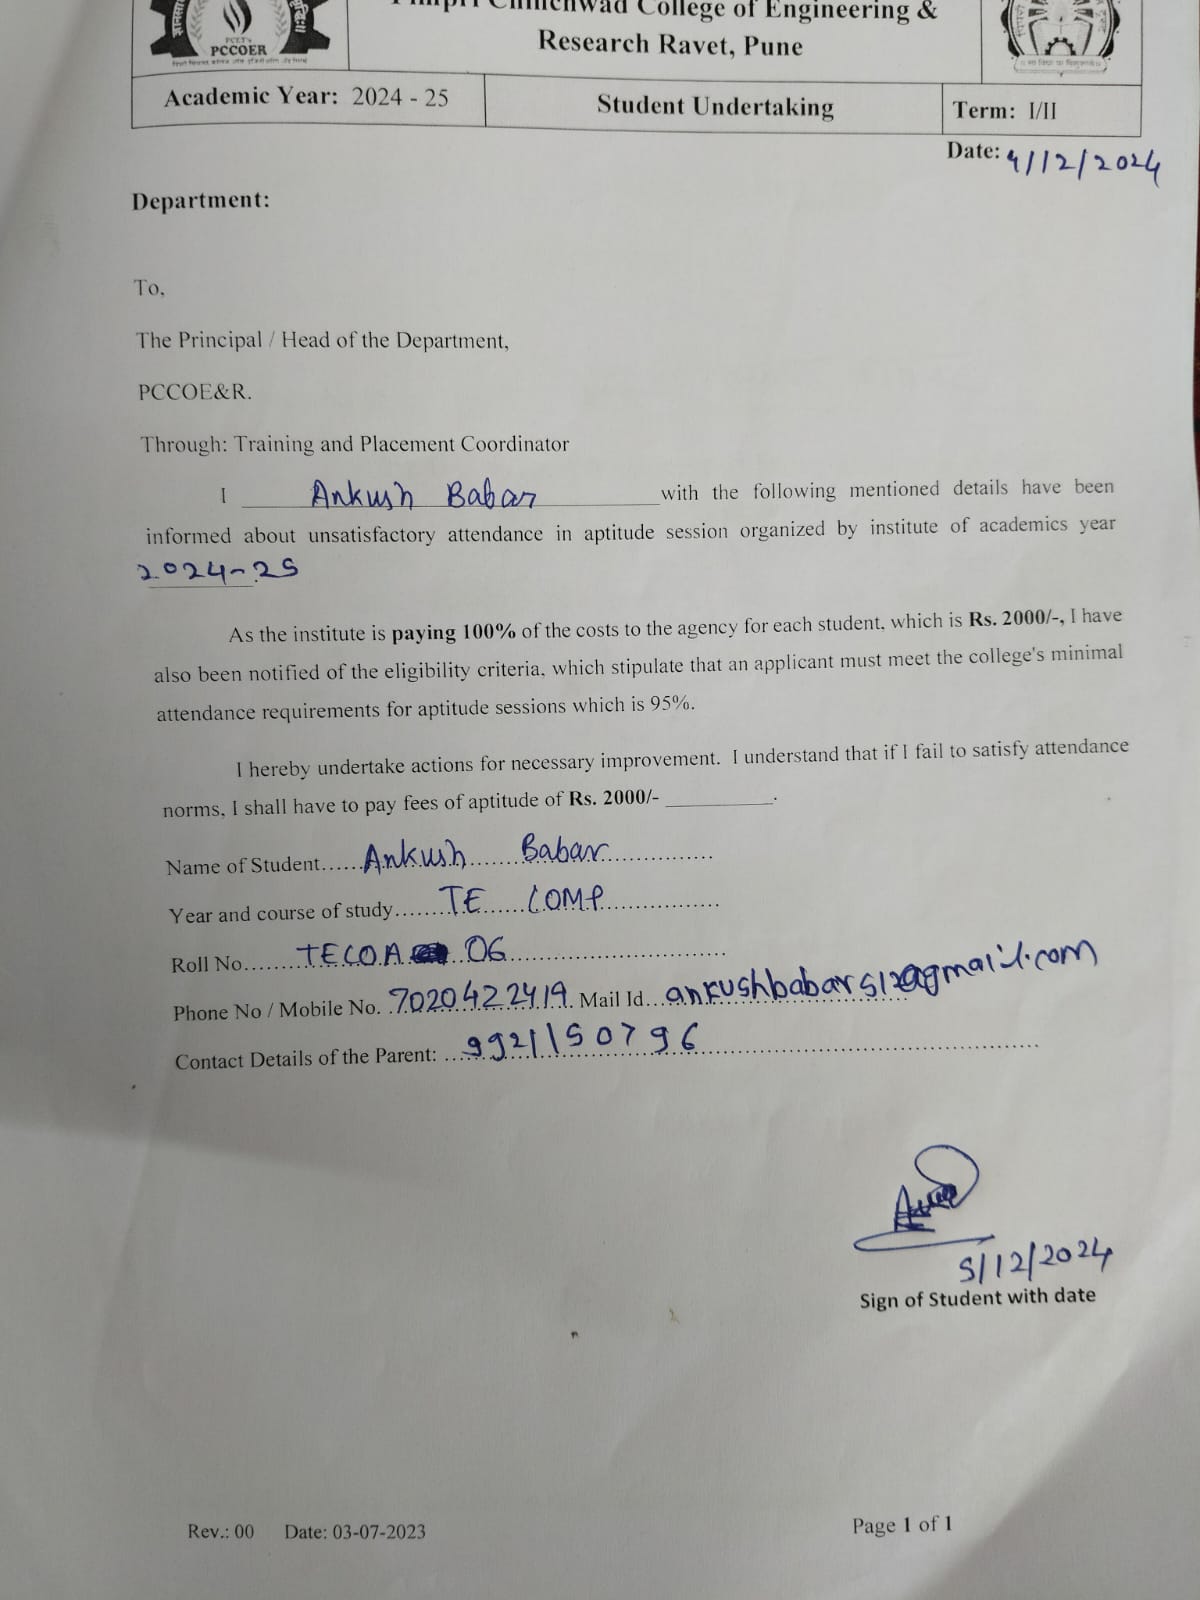 Chinchwad College of Engineering &
Research Ravet, Pune
PCET's
PCCOER
Academic Year: 2024 - 25
Student Undertaking
Term: I/II
Date: 4/12/2024
Department:
To,
The Principal / Head of the Department,
PCCOE&R.
Through: Training and Placement Coordinator
I Ankush Babar with the following mentioned details have been
informed about unsatisfactory attendance in aptitude session organized by institute of academics year
2024-25
As the institute is paying 100% of the costs to the agency for each student, which is Rs. 2000/-, I have
also been notified of the eligibility criteria, which stipulate that an applicant must meet the college's minimal
attendance requirements for aptitude sessions which is 95%.
I hereby undertake actions for necessary improvement. I understand that if I fail to satisfy attendance
norms, I shall have to pay fees of aptitude of Rs. 2000/- __________.
Name of Student......Ankush......Babar...............
Year and course of study.......TE.....COMP................
Roll No.......TECOA 06...............................
Phone No / Mobile No. 7020422419 Mail Id...ankushbabar512@gmail.com
Contact Details of the Parent: ...9921150796.............................................
5/12/2024
Sign of Student with date
Rev.: 00 Date: 03-07-2023
Page 1 of 1